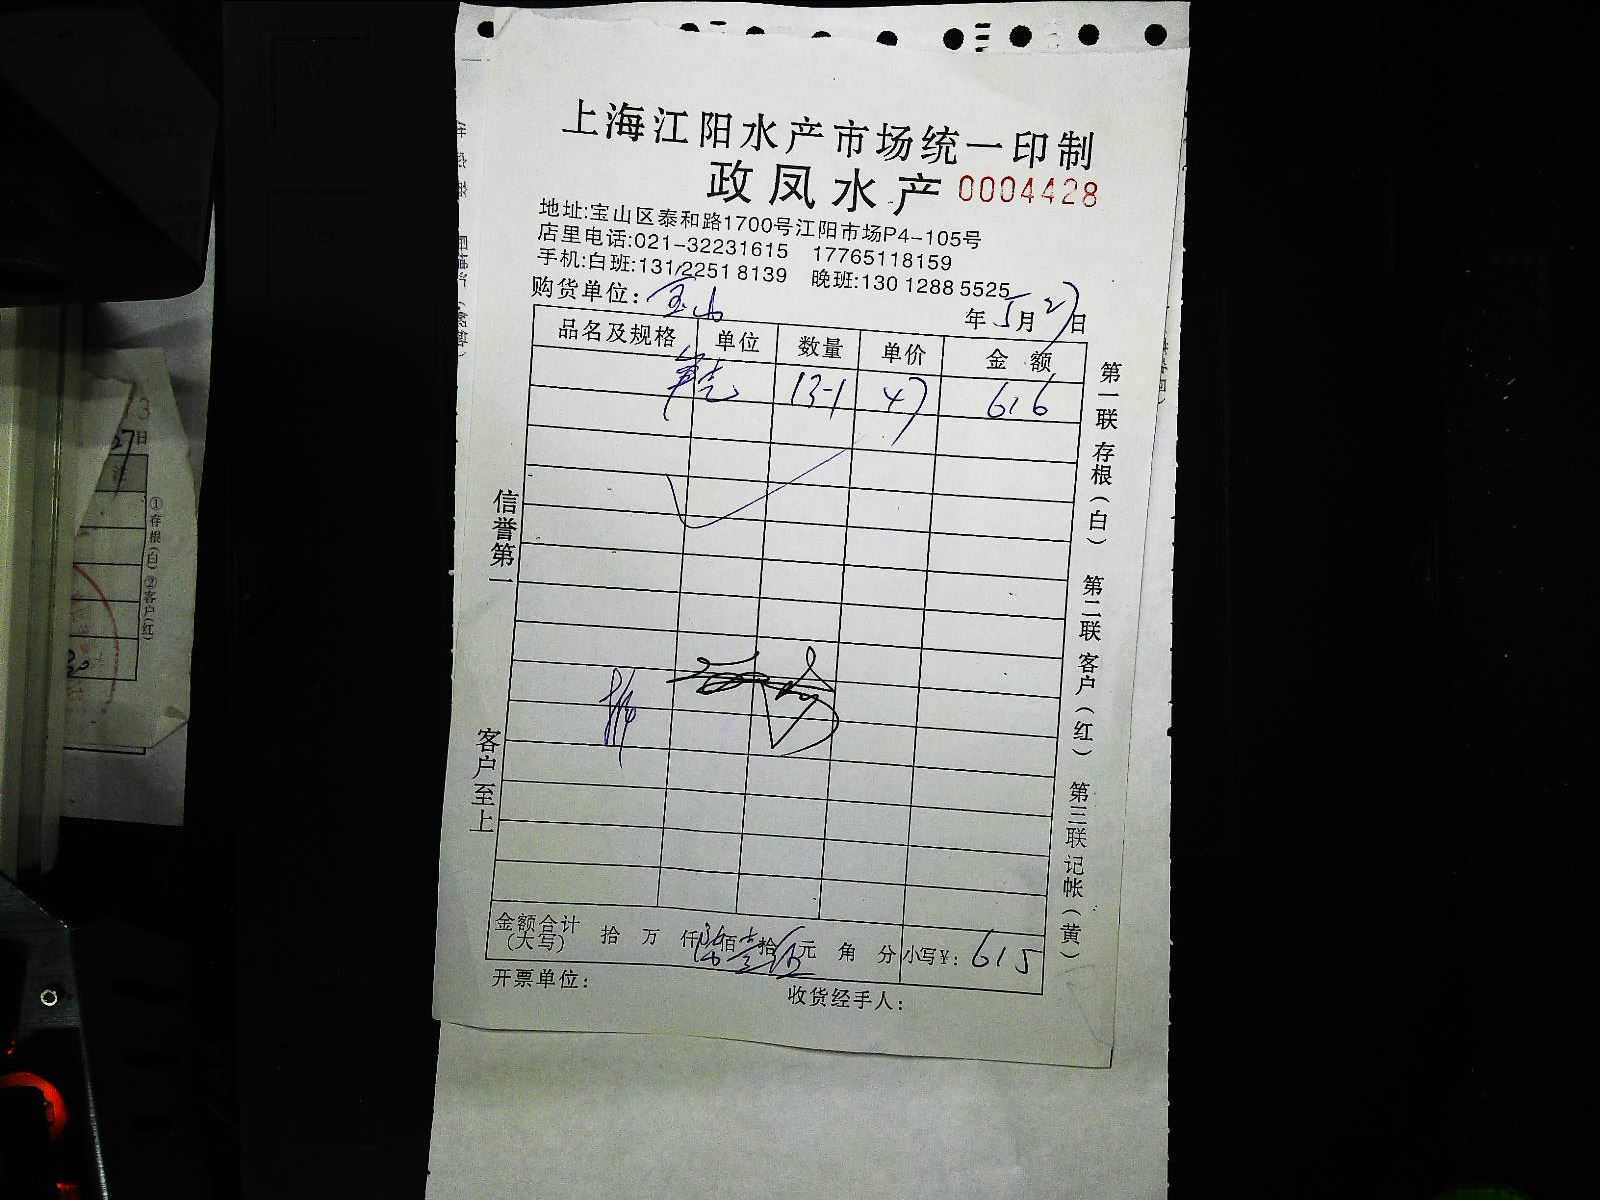 上海江阳水产市场统一印制
政凤水产 0004428
地址:宝山区泰和路1700号江阳市场P4-105号
店里电话:021-32231615 17765118159
手机:白班:13122518139 晚班:13012885525
购货单位: 宝山 年5月27日
品名及规格 单位 数量 单价 金额
13-1 47 616
信誉第一
客户至上
第一联存根(白)
第二联客户(红)
第三联记帐(黄)
金额合计(大写) 拾 万 仟陆佰壹拾伍元 角 分 小写¥: 615
开票单位: 收货经手人:
27日
①存根(白)②客户(红)